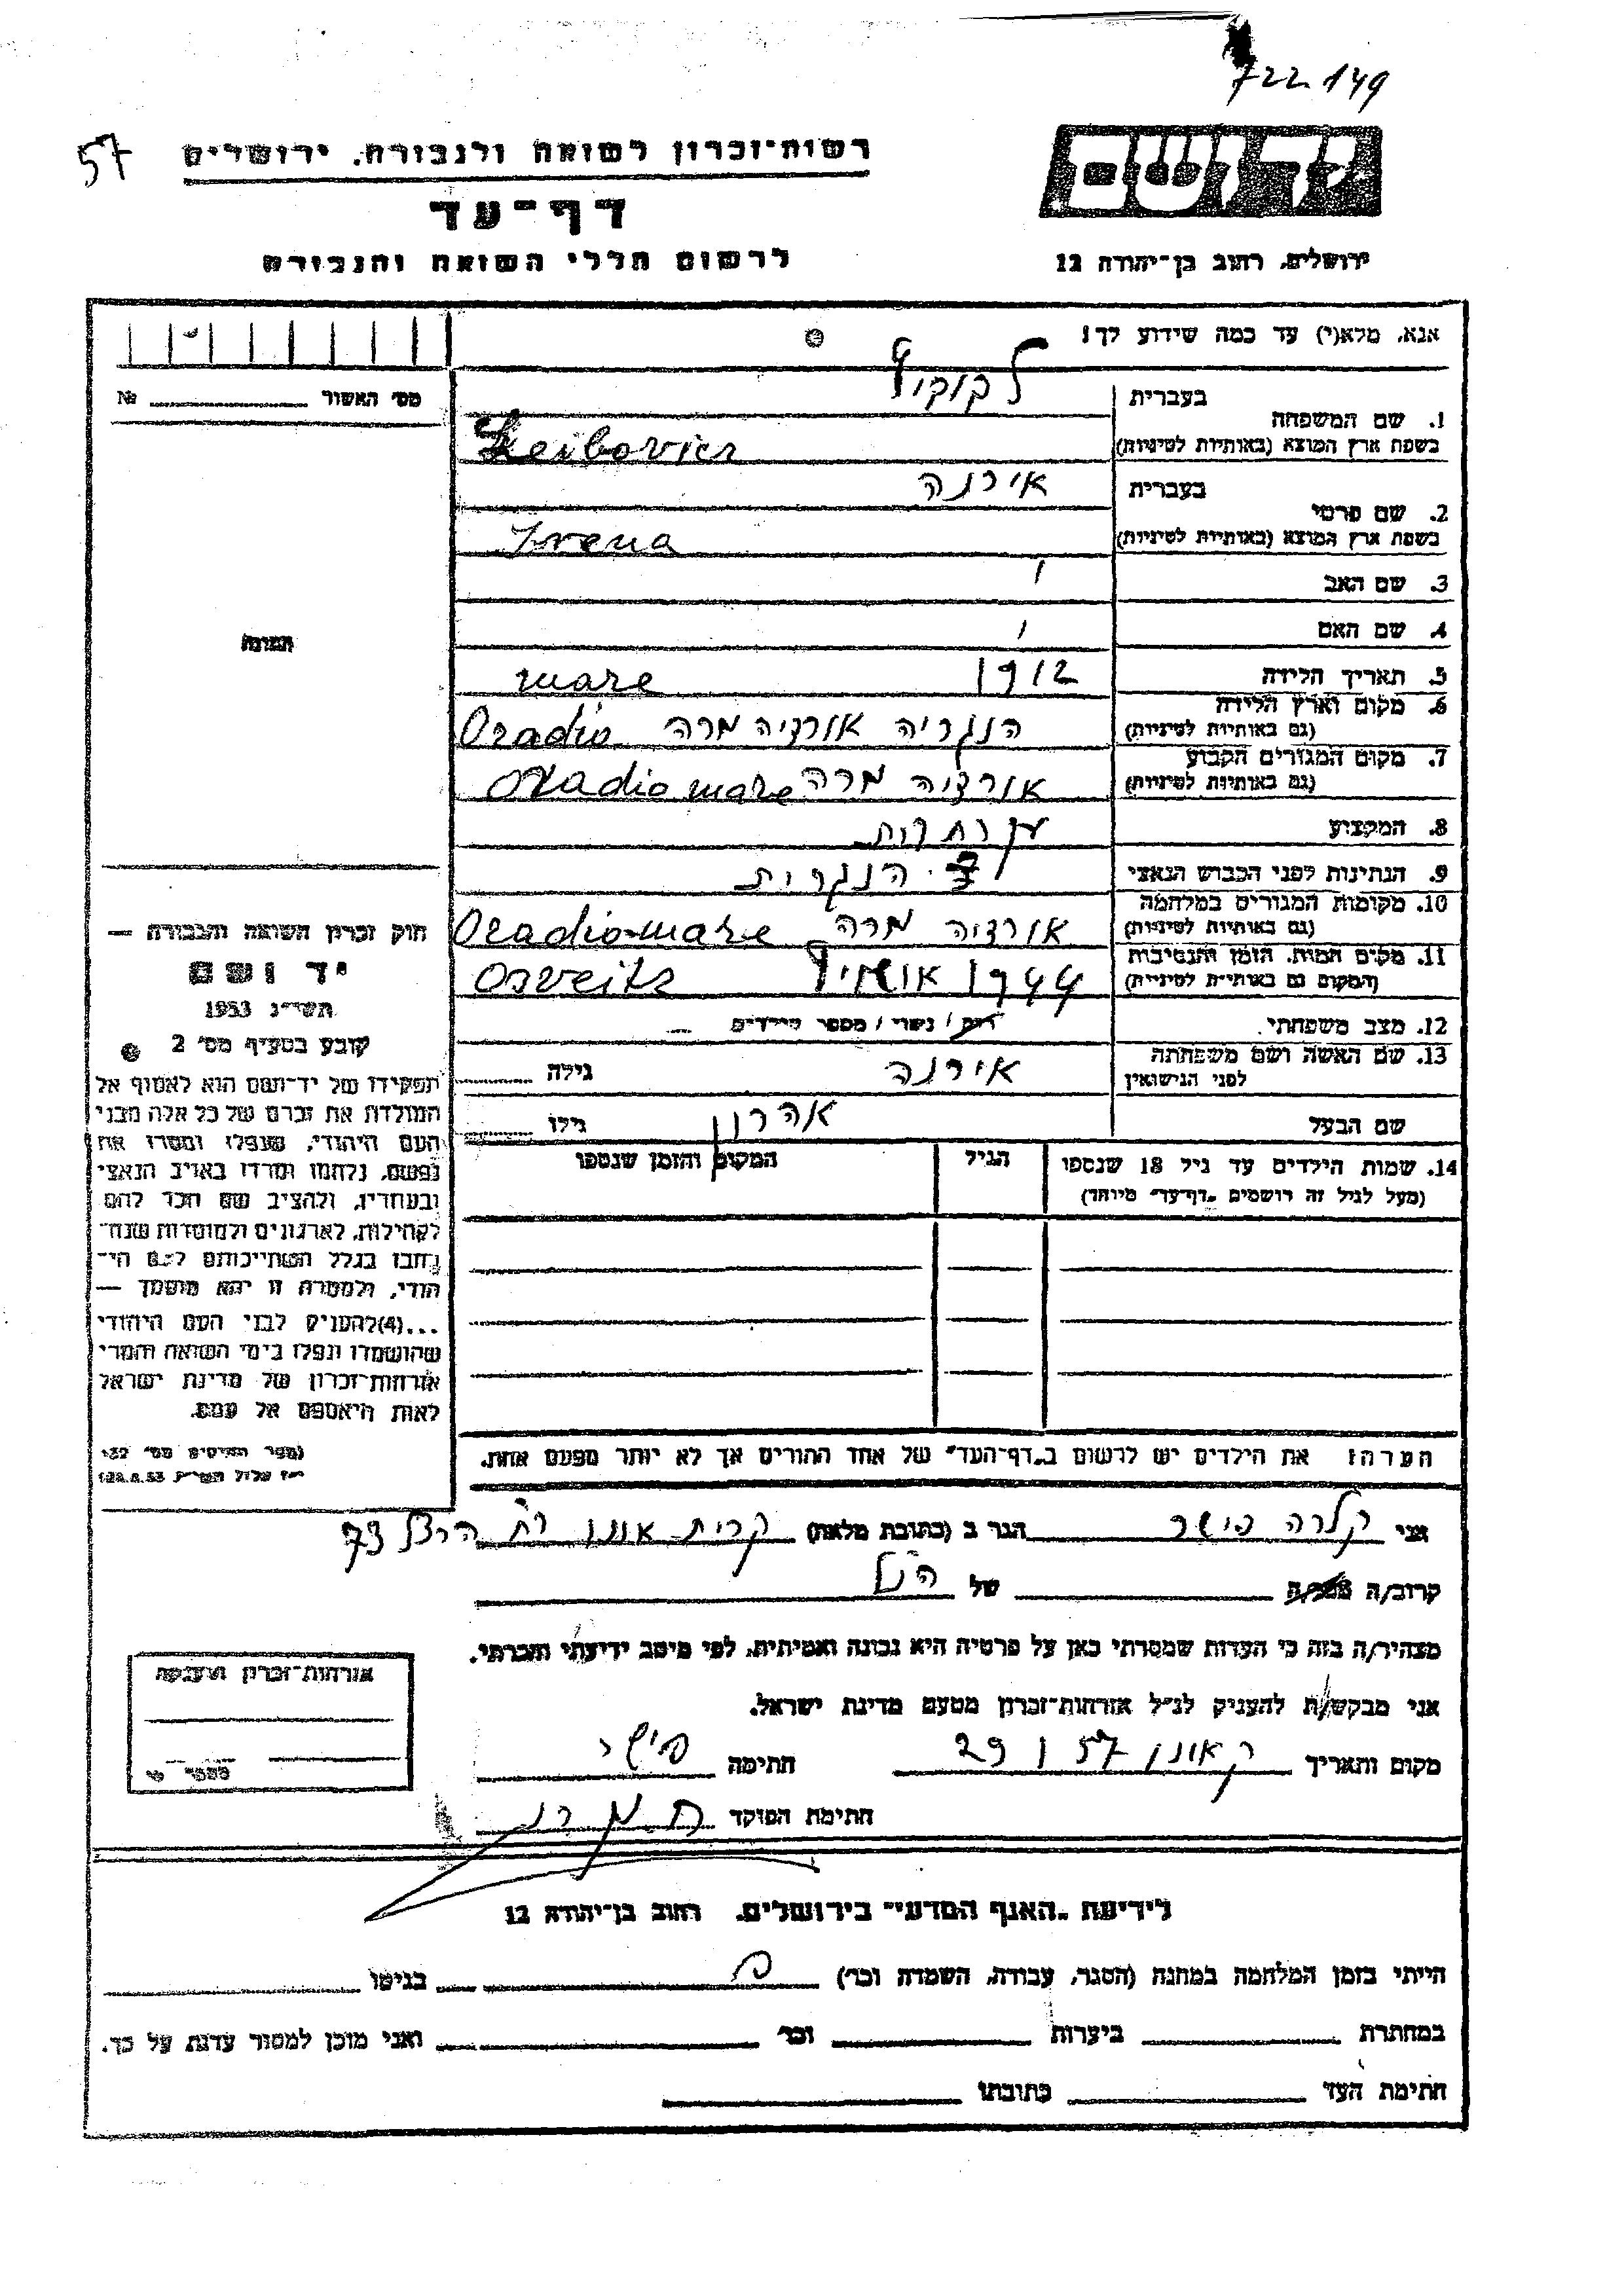 722.149
57
רשות־זכרון לשואה ולגבורה, ירושלים
יד ושם
דף־עד
לרשום חללי השואה והגבורה
ירושלים, רחוב בן־יהודה 12
אנא, מלא(י) עד כמה שידוע לך!
מס׳ האשור № 
1. שם המשפחה
בעברית
בשפת ארץ המוצא (באותיות לטיניות) Leibovics
2. שם פרטי
בעברית אירנה
בשפת ארץ המוצא (באותיות לטיניות) Irena
3. שם האב
4. שם האם
התמונה
5. תאריך הלידה 1912 mare
6. מקום וארץ הלידה הנגריה אורדיה מרה Oradio
(גם באותיות לטיניות)
7. מקום המגורים הקבוע אורדיה מרה Oradio mare
(גם באותיות לטיניות)
8. המקצוע
9. הנתינות לפני הכבוש הנאצי הנגרית
10. מקומות המגורים במלחמה אורדיה מרה Oradio mare
(גם באותיות לטיניות)
11. מקום המות, הזמן והנסיבות 1944 אושויץ Osveits
(המקום גם באותיות לטיניות)
12. מצב משפחתי רוק / נשוי / מספר הילדים —
13. שם האשה ושם משפחתה אירנה גילה
לפני הנישואין
שם הבעל אהרון גילו
14. שמות הילדים עד גיל 18 שנספו הגיל המקום והזמן שנספו
(מעל לגיל זה רושמים „דף־עד״ מיוחד)
חוק זכרון השואה והגבורה —
יד ושם
תשי״ג 1953
קובע בסעיף מס׳ 2
תפקידו של יד־ושם הוא לאסוף אל
המולדת את זכרם של כל אלה מבני
העם היהודי, שנפלו ומסרו את
נפשם, נלחמו ומרדו באויב הנאצי
ובעוזריו, ולהציב שם וזכר להם
לקהילות, לארגונים ולמוסדות שנח־
רבו בגלל השתייכותם לעם הי־
הודי, ולמטרה זו יהא מוסמך —
...(4) להעניק לבני העם היהודי
שהושמדו ונפלו בימי השואה והמרי
אזרחות־זכרון של מדינת ישראל
לאות היאספם אל עמם.
(ספר החוקים מס׳ 132
י״ז אלול תשי״ג 28.8.53)
הערה: את הילדים יש לרשום ב„דף־העד״ של אחד ההורים אך לא יותר מפעם אחת.
אני קלרה פישר הגר ב (כתובת מלאה) קרית אונו רח הרצל 73
קרוב/ה מכר/ה של הנ״ל
מצהיר/ה בזה כי העדות שמסרתי כאן על פרטיה היא נכונה ואמיתית, לפי מיטב ידיעתי והכרתי.
אני מבקש/ת להעניק לנ״ל אזרחות־זכרון מטעם מדינת ישראל.
מקום ותאריך ק אונו 29 I 57 חתימה פישר
חתימת הפוקד
אזרחות־זכרון הוענקה
מספר
לידיעת „האגף המדעי״ בירושלים, רחוב בן־יהודה 12
הייתי בזמן המלחמה במחנה (הסגר, עבודה, השמדה וכו׳) בגיטו
במחתרת ביערות וכו׳ ואני מוכן למסור עדות על כך.
חתימת העד כתובתו